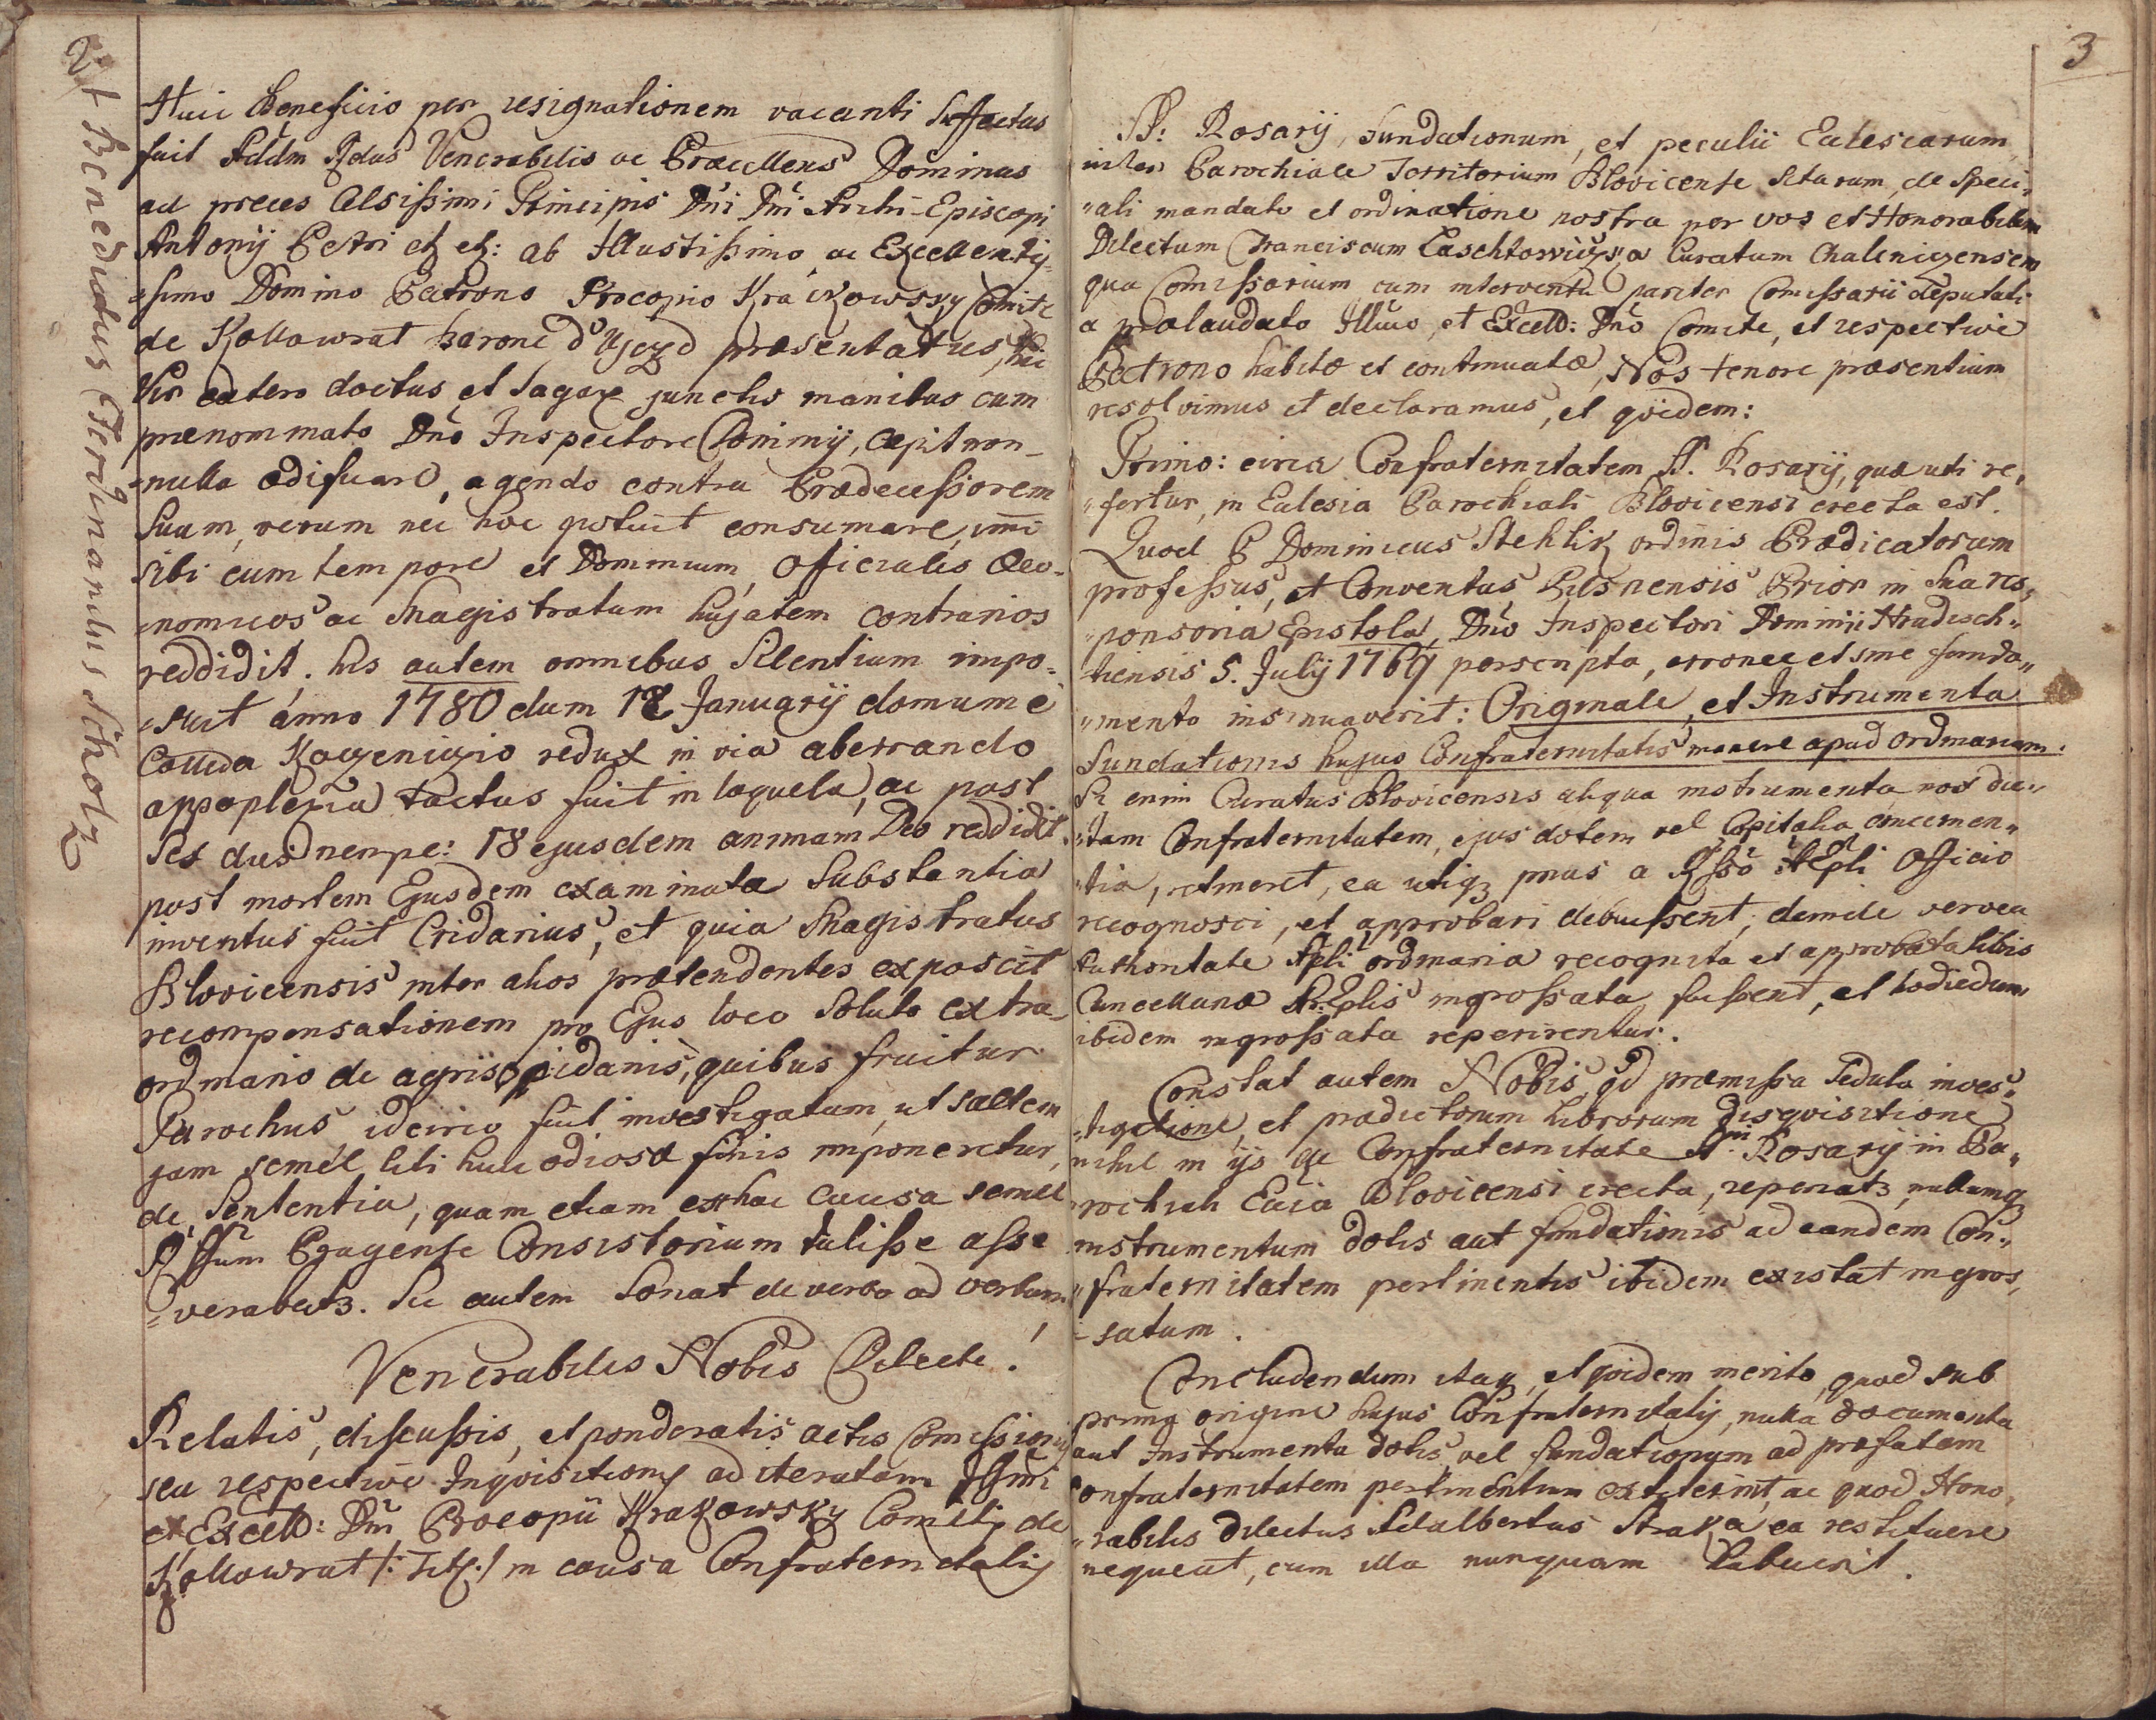 2
† Benedictus Ferdinandus Scholz
Huic Beneficio per resignationem vacanti Suffectus
fuit Addm Rdus Venerabilis ac Præcellens Dominus
ad preces Celsissimi Principis Dni Dni Archi-Episcopi
Antonij Petri etz etz: ab Illustissimo ac Excellentis-
-simo Domino Patrono Procopio Krakowsky Comite
de Kollowrat barone d'Ujezd præsentatus, hic
Vir cætero doctus et Sagax junctis manibus cum
prænominato Dno Inspectore Dominij, cæpit non-
-nulla ædificare, agendo contra Prædecessorem
Suum, verum nec hoc potuit consumare, imo
sibi cum tempore et Dominium, Officiales Oeco-
-nomicos ac Magistratum hujatem contrarios
reddidit. his autem omnibus Silentium impo-
-suit anno 1780 dum 12 Januarij domum e
Condœ Kozenizio redux in via aberrando
appoplexia tactus fuit in loquela, ac post
Sex dies nempe: 18 ejusdem animam Deo reddidit.
post mortem Ejusdem examinata Substantia
inventus fuit Cridarius, et quia Magistratus
Blovicensis inter alios prætendentes exposcit
recompensationem pro Ejus loco Soluto extra-
ordinario de agris oppidanis, quibus fruitur
Parochus, idcirco fuit investigatum, ut saltem
jam semel liti huic odiosæ finis imponeretur,
de Sententia, quam etiam ex hac causa semel
Rssum Pragense Consistorium tulisse asse-
-verabatz. Sic autem Sonat de verbo ad verbum
Venerabilis Nobis Dilecte!
Relatis, discussis, et ponderatis actis Comissionis
seu respective Inquisitionis ad iteratam Illmi
et Excell: Dni Procopii Krakowsky Comitis de
Kollowrat /: Titz :/ in causa Confraternitatis
3
SS: Rosarij, fundationum, et peculii Ecclesiarum
inter Parochiale Territorium Blovicense sitarum, de Speci-
"ali mandato et ordinatione nostra per vos et Honorabilem
Dilectum Franciscum Laschtowiczka Curatum Chaleniczensem
qua Comissarium cum interventu pariter Comissarii deputati
a prælaudato Illmo, et Excell: Dno Comite, et respective
Patrono habitæ et continuatæ, Nos tenore præsentium
resolvimus et declaramus, et quidem:
Primo: circa Confraternitatem SS. Rosarij, quæ uti re-
"fertur, in Ecclesia Parochiali Blovicensi erecta est.
Quod P Dominicus Stehlik ordinis Prædicatorum
professus, et Conventus Pilsnensis Prior in Sua res-
"ponsoria Epistola, Dno Inspectori Dominij Hradisch-
tiensis 5. July 1769 perscripta, erronee et sine funda-
"mento insinuaverit: Originale, et Instrumenta
Fundationis hujus Confraternitatis manere apud ordinarium.
Si enim Curatus Blovicensis aliqua instrumenta nost dic-
"tam Confraternitatem, ejus dotem vel Capitalia concernen-
"tia, retineret, ea utiqz prius a Rsso AEpli Officio
recognosci, et approbari debuissent, deinde vervea
Authoritate AEpli ordinaria recognita et approbata libris
Cancellariæ Ar:Eplis ingrossata fuissent, et hodiedum
ibidem ingrossata reperirentur.
Constat autem Nobis, qd præmissa Sedula inves-
-tigatione, et prædictorum librorum disquisitione
nihil in ijs de Confraternitate SSmi Rosarij in Pa-
rochiali Ecclia Blovicensi erecta, reperiatz, nullumqz
instrumentum dotis aut fundationis ad eandem Con-
"fraternitatem pertinentis ibidem existat ingros-
-satum.
Concludendum itaqz, et quidem merito, quod sub
prima origine hujus Confraternitatis, nulla documenta
aut Instrumenta dotis, vel fundationum ad præfatam
Confraternitatem pertinentium extiterint, ac quod Hono-
"rabilis Dilectus Adalbertus Straka ea restituere
nequeat, cum illa nunquam habuerit.